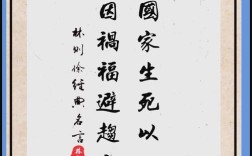 國家生死以
因禍福避趨
林則徐經典名言